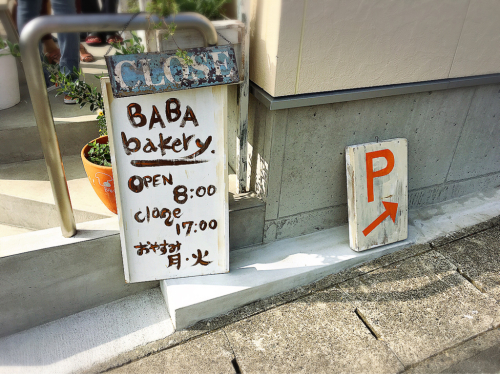 CLOSE
BABA
bakery.
OPEN
8:00
close
17:00
おやすみ
月・火
P